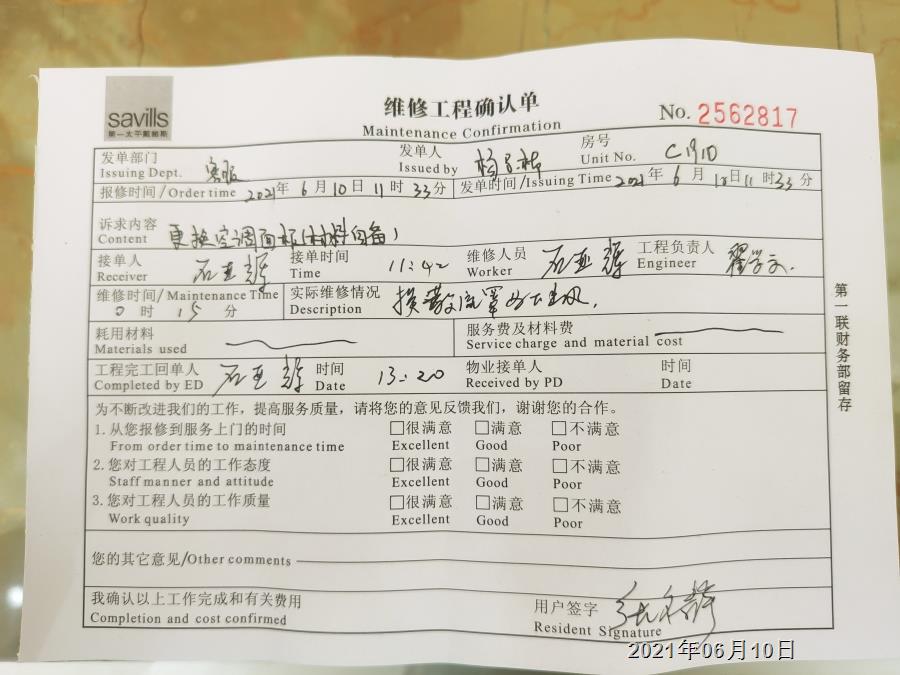 savills
第一太平戴维斯
维修工程确认单
Maintenance Confirmation
No. 2562817
发单部门 发单人 房号
Issuing Dept. 客服 Issued by 杨 Unit No. C191D
报修时间/Order time 2021年6月10日11时33分 发单时间/Issuing Time 2021年6月10日11时33分
诉求内容
Content 更换空调面板(材料自备)
接单人 接单时间 维修人员 工程负责人
Receiver 石亚辉 Time 11:42 Worker 石亚辉 Engineer 翟学文.
维修时间/Maintenance Time 实际维修情况
0时15分 Description 换散流罩
耗用材料 服务费及材料费
Materials used Service charge and material cost
工程完工回单人 时间 物业接单人 时间
Completed by ED 石亚辉 Date 13:20 Received by PD Date
为不断改进我们的工作，提高服务质量，请将您的意见反馈我们，谢谢您的合作。
1.从您报修到服务上门的时间 □很满意 □满意 □不满意
From order time to maintenance time Excellent Good Poor
2.您对工程人员的工作态度 □很满意 □满意 □不满意
Staff manner and attitude Excellent Good Poor
3.您对工程人员的工作质量 □很满意 □满意 □不满意
Work quality Excellent Good Poor
您的其它意见/Other comments
我确认以上工作完成和有关费用 用户签字
Completion and cost confirmed Resident Signature
第一联财务部留存
2021年06月10日